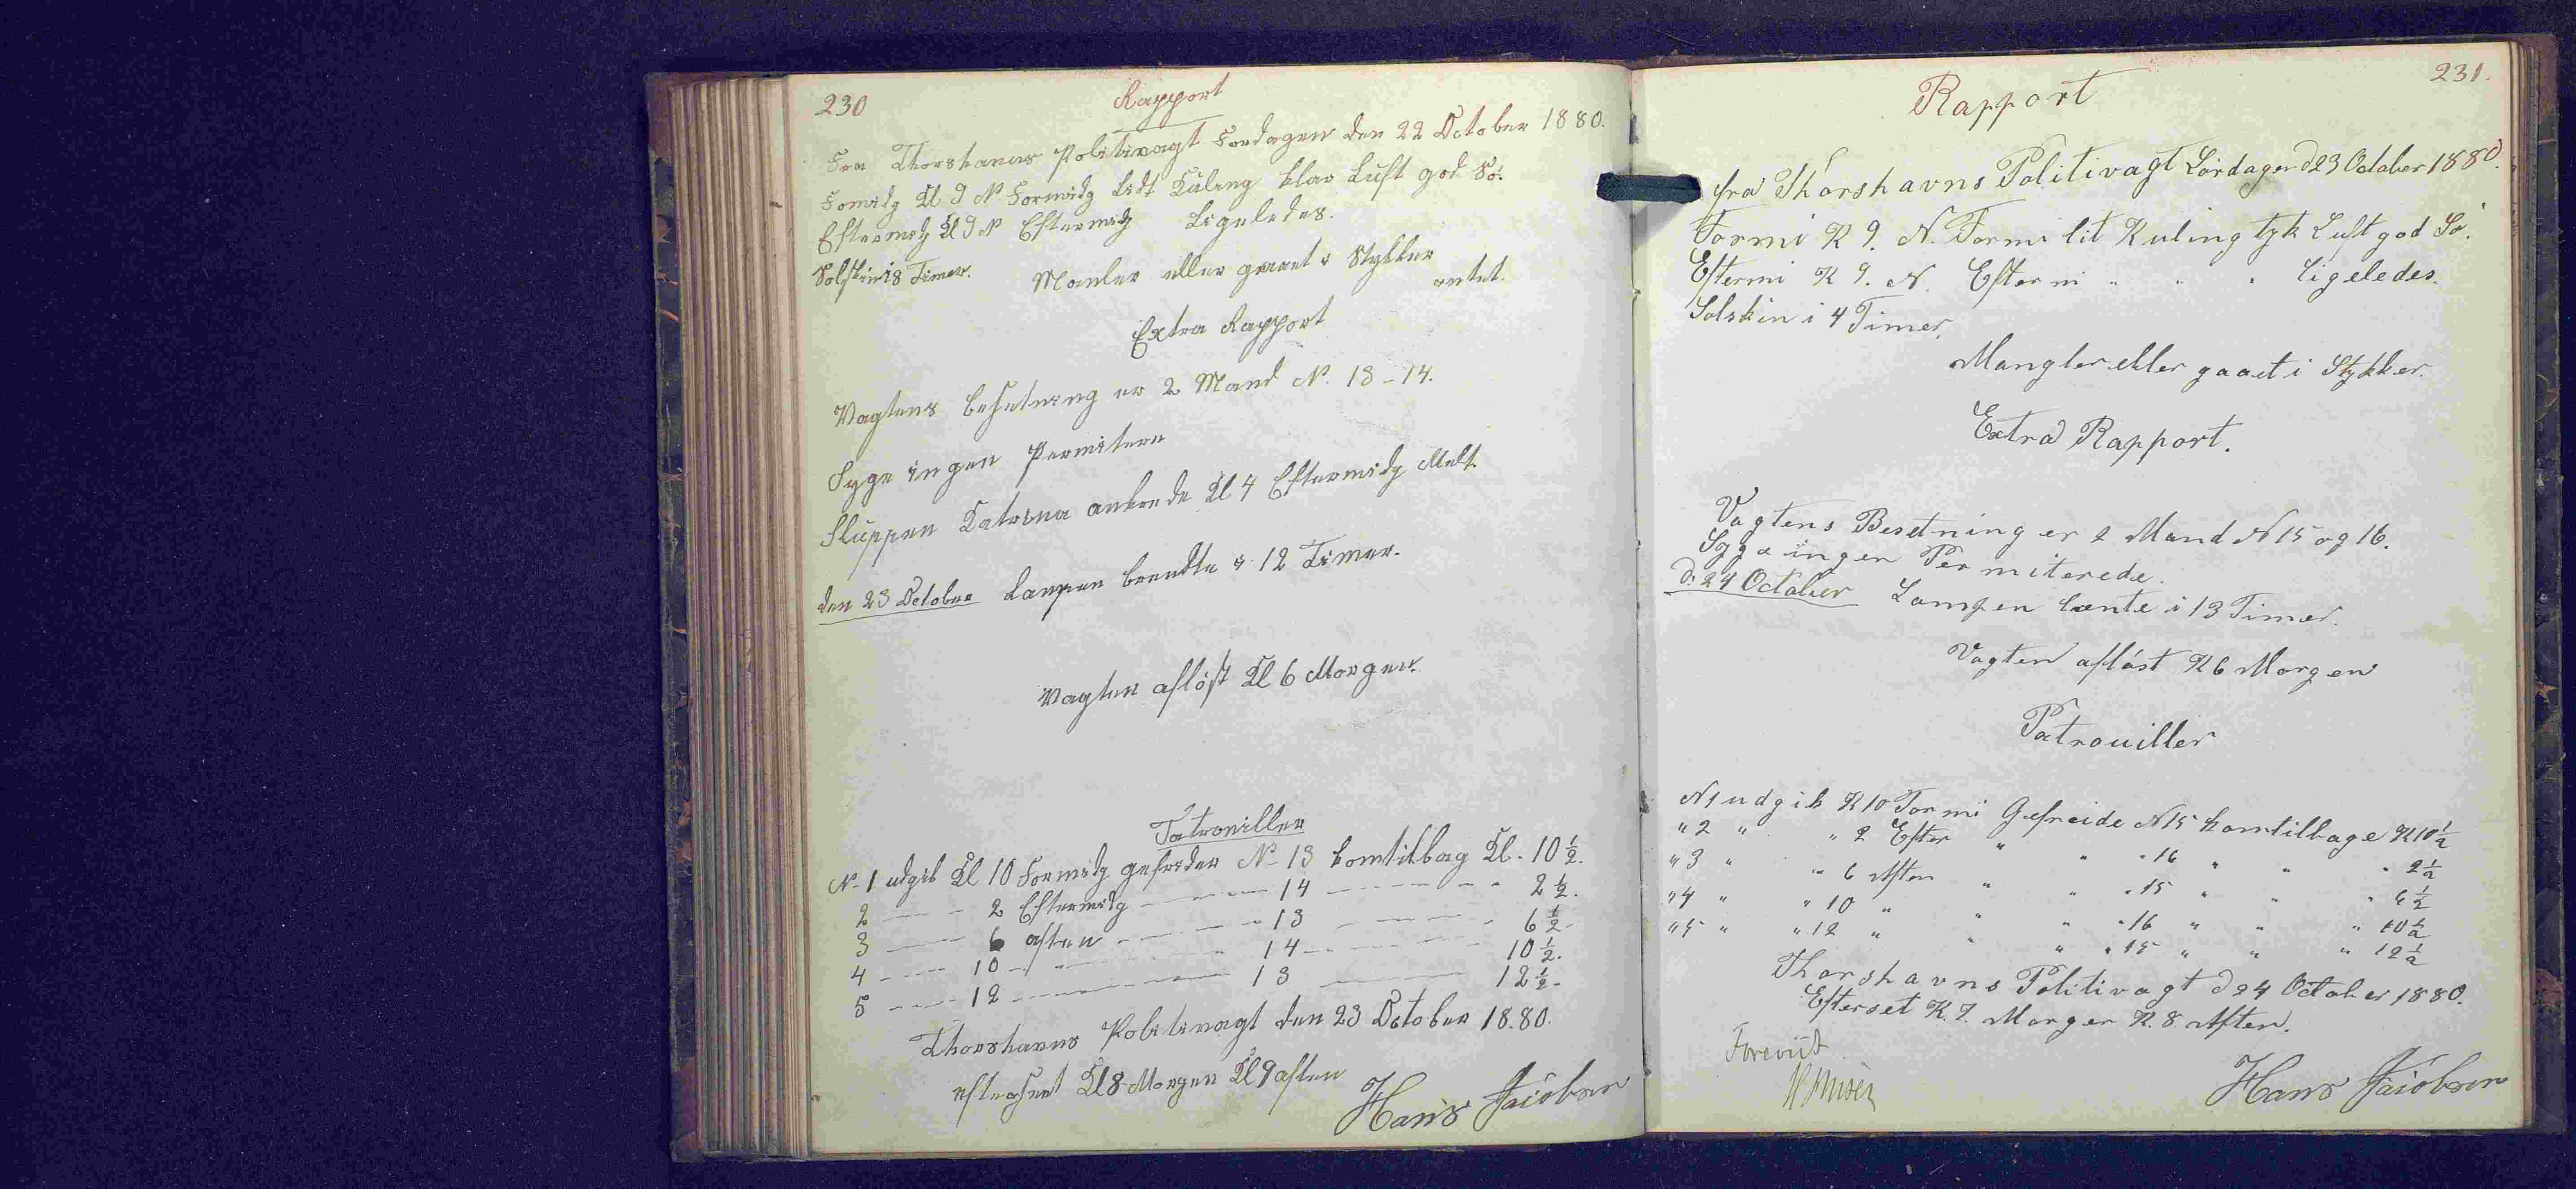 230
Rapport
Fra Thorshavns Politivagt Fredagen den 22 October 1880.
Fomidg Kl 9 N. Formidg Lidt Kuling klar Luft god Sö.
Eftermidg Kl 9 N Eftermidg Ligeledes.
Solskin i 8 Timer.
Manler eller gaaet i Stykker
intet.
Extra Rapport
Vagtens Besetning er 2 Mand N. 13-14.
Syge ingen Permitere
Sluppen Katrina ankrede Kl 4 Eftermidg Melt.
den 23 October Lampen brendte i 12 Timer.
Vagten aflöst Kl 6 Morgen.
Patrouiller
N. 1 udgik Kl 10 Formidg gefrider No 13 komtilbag Kl. 10 ½.
2 2 Eftermidg 14 2 ½.
3 6 aften 13 6 ½
4 10 14 10 ½.
5 12 13 12 ½
Thorshavns Politivagt den 23 October 1880.
efterseet Kl 8 Morgen Kl 9 aften
Hans Jacobsen
231.
Rapport
fra Thorshavns Politivagt Lördagen d 23 October 1880.
Formi K 9. N. Formi lit Kuling tyk Luft god Sö.
Eftermi K 9. N. Eftermi " " " ligeledes.
Solskin i 4 Timer.
Mangler eller gaaet i Stykker.
Extra Rapport.
Vagtens Besetning er 2 Mand N 15 og 16.
Syge ingen Permiterede.
d. 24 October Lampen brente i 13 Timer.
Vagten aflöst K 6 Morgen
Patrouiller
N 1 udgik K 10 Formi Gefreide N 15 komtilbage K 10 ½
" 2 " " 2 Efter " " " 16 " " " 2 ½
" 3 " " 6 Aften " " " 15 " " " 6 ½
" 4 " " 10 " " " " 16 " " " 10 ½
" 5 " " 12 " " " " 15 " " " 12 ½
Thorshavns Politivagt d 24 October 1880.
Efterset K. 7. Morgen K. 8. Aften.
Foreviist
Hans Jacobsen